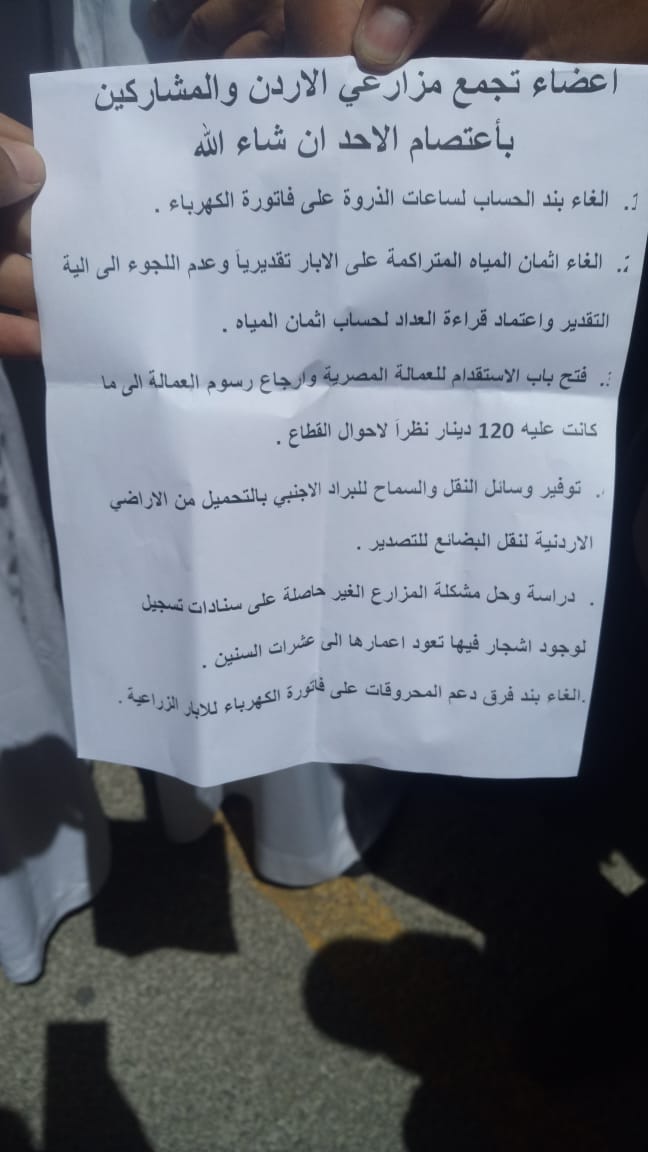 اعضاء تجمع مزارعي الاردن والمشاركين
بأعتصام الاحد ان شاء الله
1. الغاء بند الحساب لساعات الذروة على فاتورة الكهرباء .
2. الغاء اثمان المياه المتراكمة على الابار تقديرياً وعدم اللجوء الى الية
التقدير واعتماد قراءة العداد لحساب اثمان المياه .
. فتح باب الاستقدام للعمالة المصرية وارجاع رسوم العمالة الى ما
كانت عليه 120 دينار نظراً لاحوال القطاع .
. توفير وسائل النقل والسماح للبراد الاجنبي بالتحميل من الاراضي
الاردنية لنقل البضائع للتصدير .
. دراسة وحل مشكلة المزارع الغير حاصلة على سنادات تسجيل
لوجود اشجار فيها تعود اعمارها الى عشرات السنين .
.الغاء بند فرق دعم المحروقات على فاتورة الكهرباء للابار الزراعية .